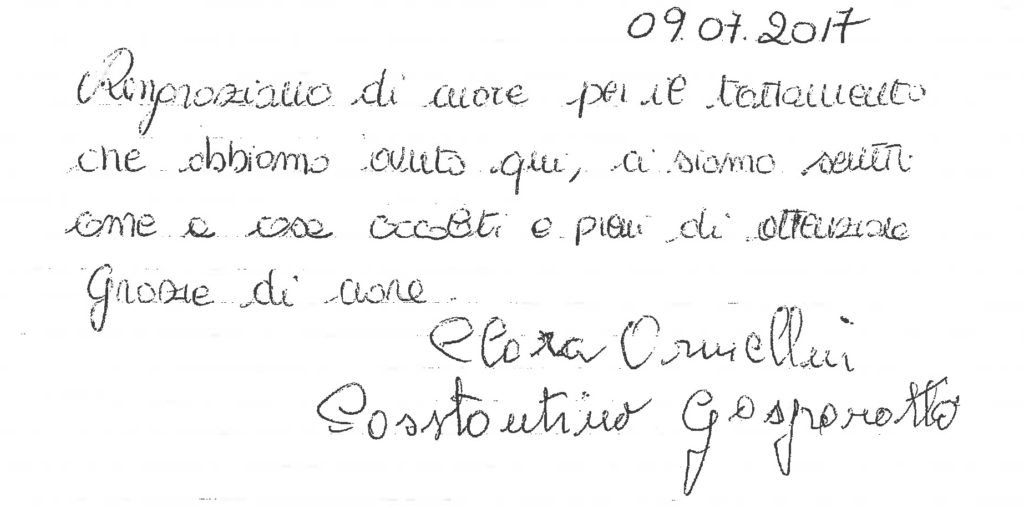 09.07.2017
Ringraziamo di cuore per il trattamento
che abbiamo avuto qui, ci siamo sentiti
come a casa accolti e pieni di attenzione
Grazie di cuore.
Clara Ornellini
Costantino Gasparotto